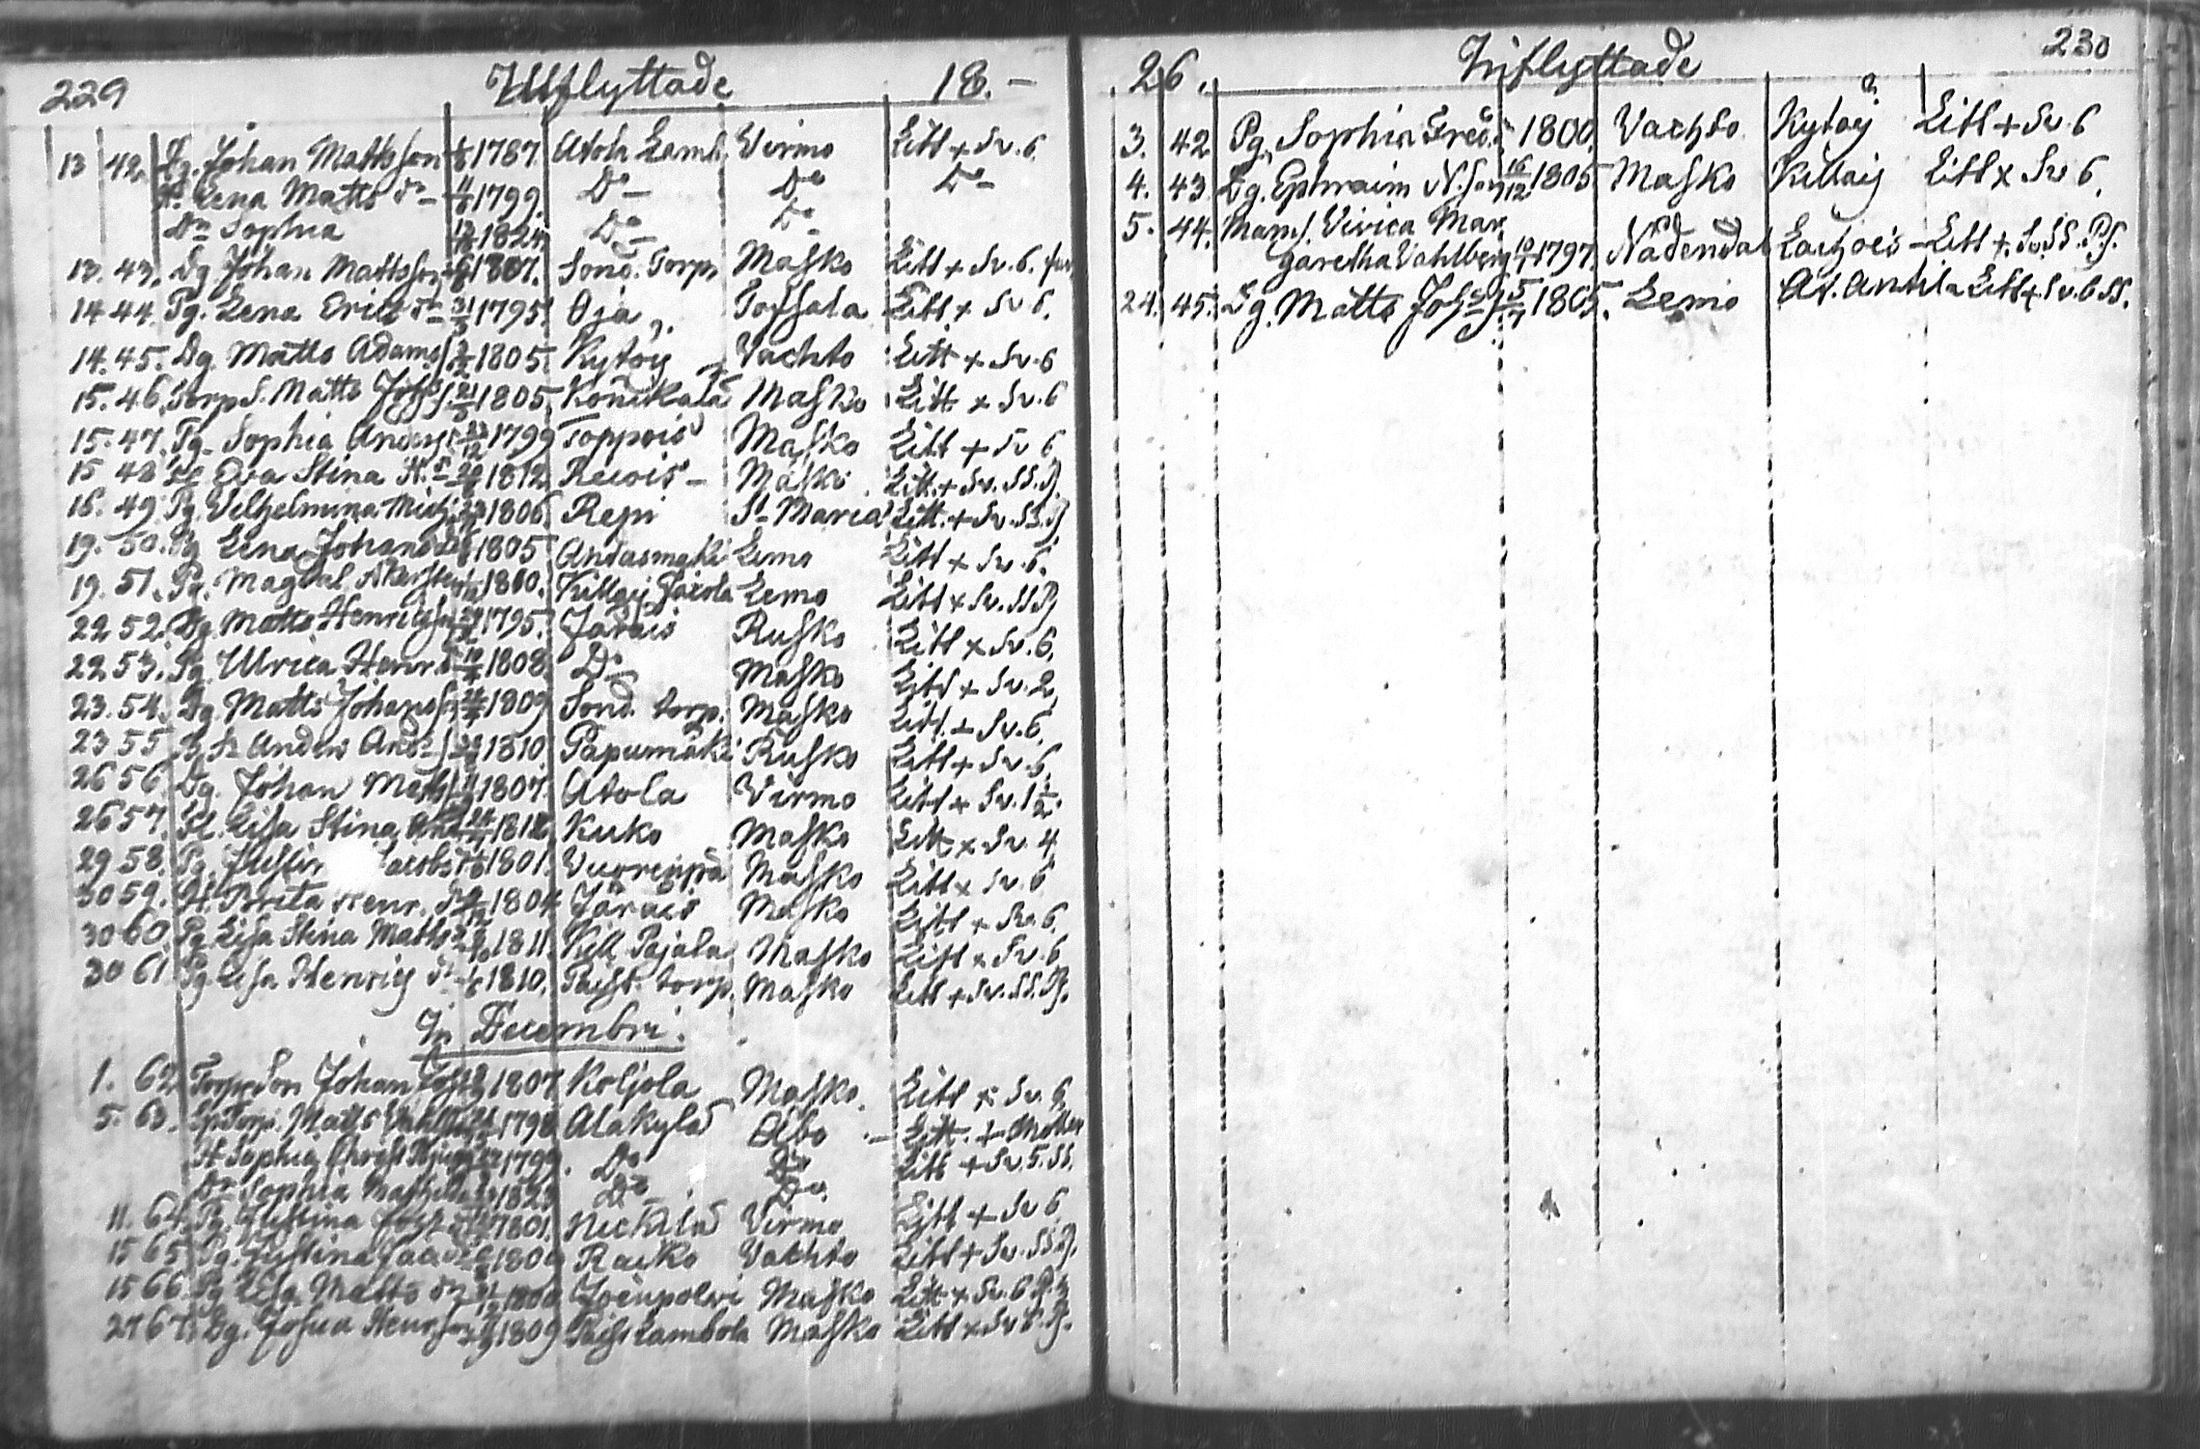 229 Utflyttade 18.-
13 42. Dg. Johan Mattsson 1787. Atola Lamb. Virmo Litt + Sv. 6.
H. Lena Matts dr 1799. Do- Do Do-
Dr Sophia 1824. Do- Do
13. 43. Dg Johan Mattsson 1807. Sond. Torp Masko Litt + Sv. 6.
14 44. Pg. Lena Erics dr 31/5 1795. Oja Töfsala Litt + Sv 6.
14. 45. Dg. Matts Adams 1805. Kytöy Vachto Litt + Sv. 6
15. 46. Torp S. Matts Johs 21/5 1805. Konikala Masko Litt x Sv. 6
15. 47. Pg. Sophia Anders 1799 Toppois Masko Litt + Sv 6
15 48 Eva Stina H. dr 1812 Recois- Masko Litt. + Sv. SS. P.
16. 49 Pg. Vilhelmina Mich 1806. Repi St Maria Litt. + Sv. SS. P
19. 50. Pg Lena Johans 1805 Andasmaki Lemo Litt x Sv. 6.
19. 51. Pg. Magdal Åkersten 1800. Killaij Jacola Lemo Litt x Sv. SS P
22 52. Dg. Matts Henricsson 1795. Järäis Rusko Litt x Sv. 6.
22 53. Pg. Ulrica Henr. 1808. Do Masko Litt + Sv. 2
23. 54. Dg. Matts Johansson 1809 Sond. torp. Masko Litt. + Sv. 6.
23 55 Anders And 1810 Papumäki Rusko Litt + Sv. 6.
26 56. Dg. Johan Matts 1807. Atola Virmo Litt x Sv. 1 1/2.
26 57. Pl. Lisa Stina And 1812 Kuko Masko Litt x Sv. 4
29 58. Pg. Justin Jacobs 1801. Vuorenpä Masko Litt x Sv. 6
30 59. H. Brita Henr. dr 1804 Järäis Masko Litt + Sv. 6.
30 60. Pg Lisa Stina Matts 1811. Kill Pajala Masko Litt x Sv. 6
30 61. Pg Lisa Henrics dr 1810. Paist. torp. Masko Litt + Sv. SS. P.
In Decembri.
1. 62 Torp. Son Johan Johs 1807 Koljola Masko. Litt x Sv. 6.
5. 63. Torp. Matts 179 Alakylä Åbo - Litt. +
H Sophia Christ 1799. Do Do Litt + Sv. 5. SS.
Dr Sophia Mathilda 1823 Do Do
11. 64. Pg. Justina Joh 1801. Nichilä Virmo Litt + Sv 6
15 65 Pg. Justina Jac 180 Raiko Vachto Litt + Sv. SS P.
15 66. Pg Lisa Matts dr 1800 Joenpolvi Masko Litt x Sv. 6
27 67. Dg. Josua Henrsson 1809 Paist Lambola Masko Litt x Sv 6. P.
26. Inflyttade 230
3. 42 Pg. Sophia Fred. 1800. Vachto Kytöij Litt + Sv. 6
4. 43. Dg. Ephraim N. son 16/12 1805 Masko Killaij Litt x Sv 6.
5. 44. Mams. Vivica Mar
garetha Vahlberg 10/7 1797. Nådendal Laijois - Litt +. Sv. SS. P.
24. 45. Dg. Matts Johs 5/7 1805. Lemo At. Antila Litt + Sv. 6 SS.